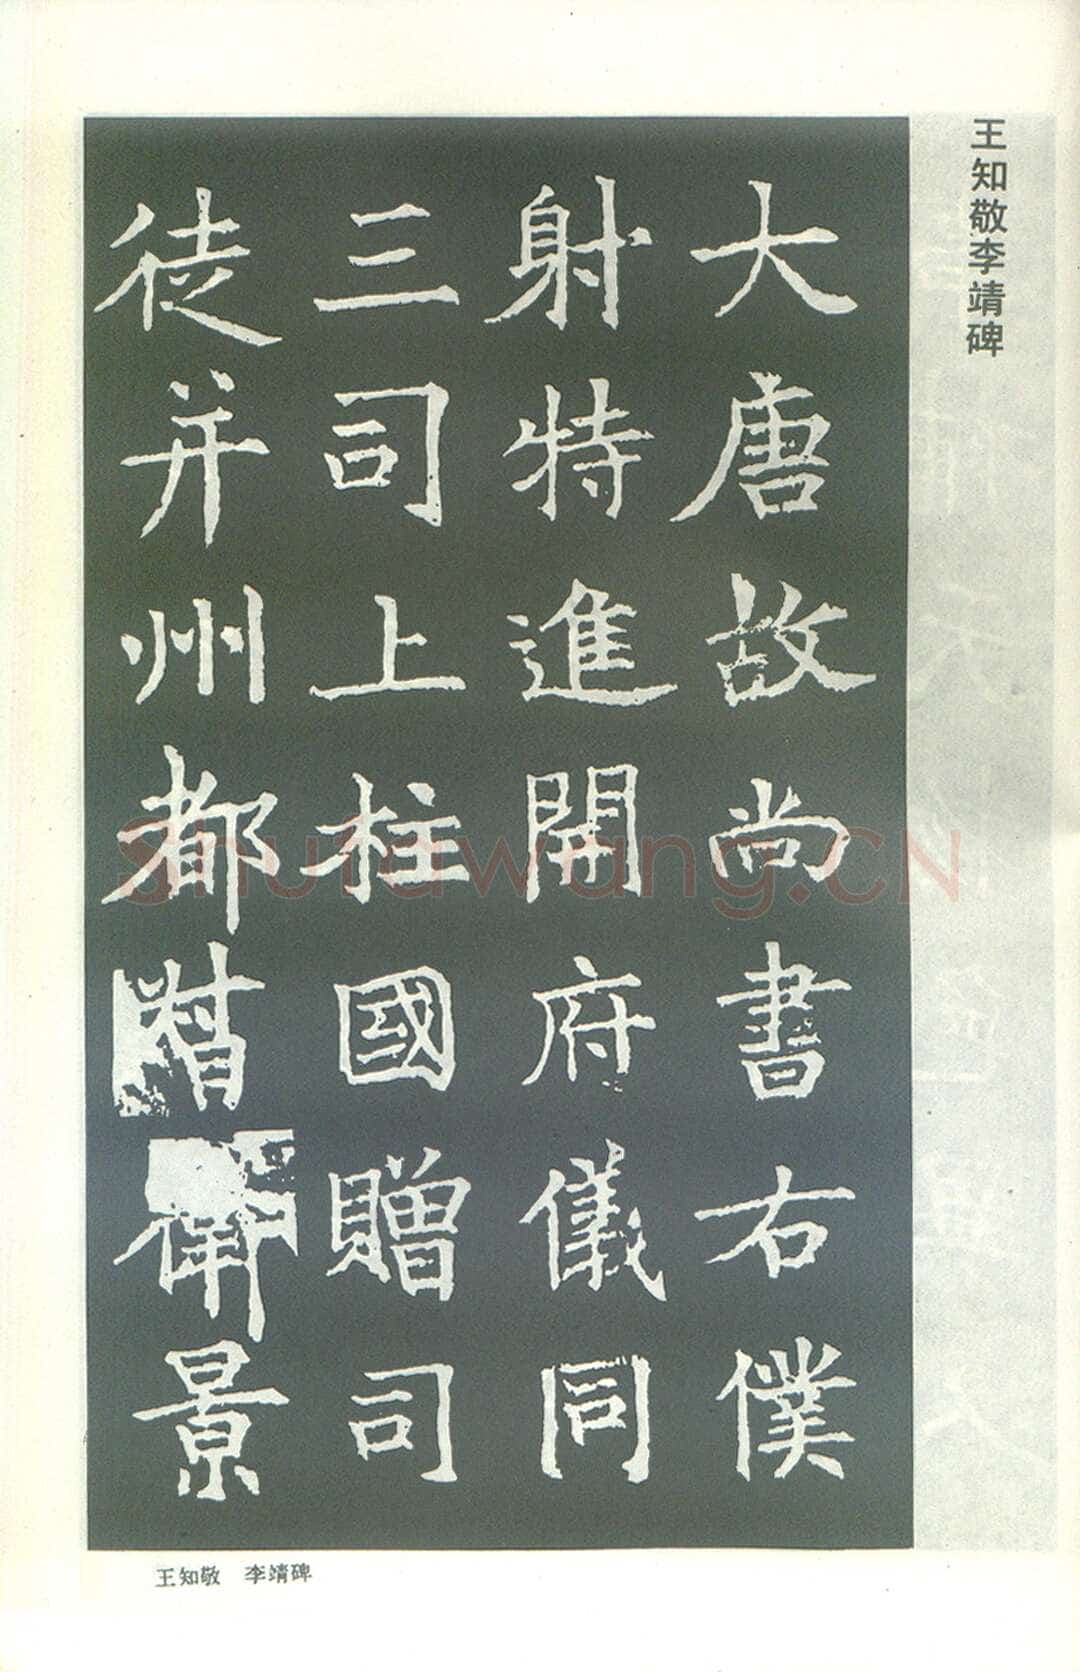 王知敬李靖碑
大唐故尚書右僕
射特進開府儀同
三司上柱國贈司
徒并州都督衛景
王知敬 李靖碑
shufawang.CN